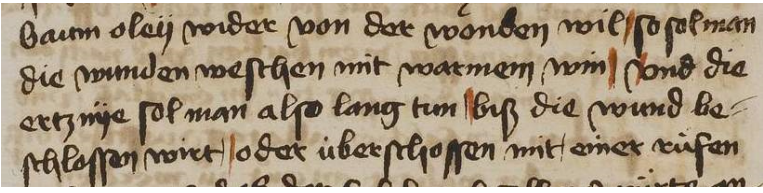 Baum oleÿ wider von der wonden wil / so sol man
die wunden weschen mit warmem win / vnd die
ertznÿe sol man also lang tun / biß die wund be=
schlossen wirt / oder überschossen mit einer rüfen